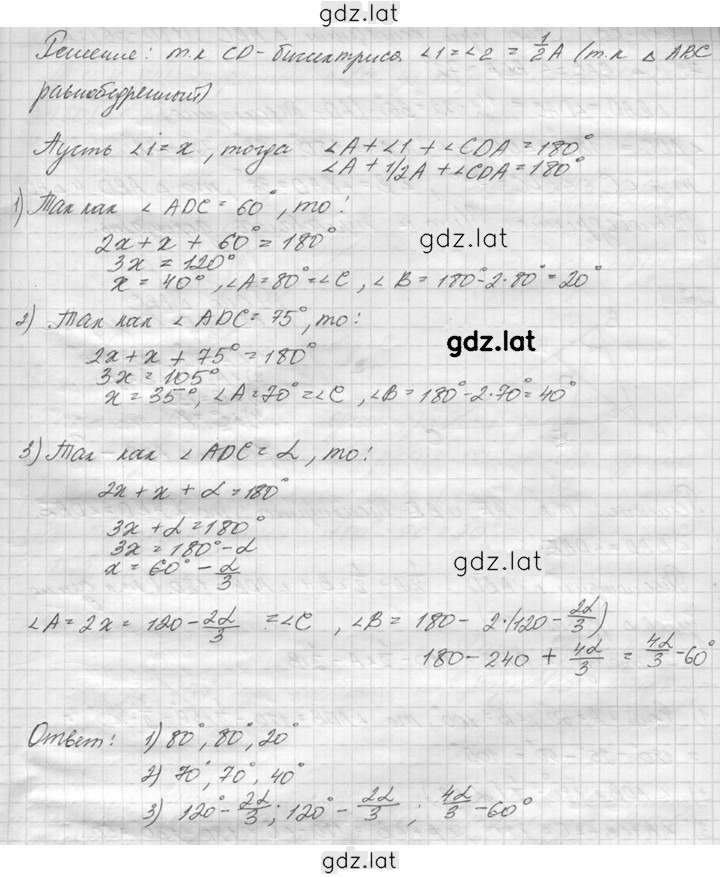 gdz.lat
Решение: т.к CD - биссектриса ∠1=∠2 = 1/2A (т.к △ABC
равнобедренный)
Пусть ∠1=x, тогда ∠A+∠1+∠CDA=180°
∠A+1/2A+∠CDA=180°
1) Так как ∠ADC=60°, то:
2x+x+60°=180°
gdz.lat
3x=120°
x=40°, ∠A=80°=∠C, ∠B=180°-2·80°=20°
2) Так как ∠ADC=75°, то:
gdz.lat
2x+x+75°=180°
3x=105°
x=35°, ∠A=70°=∠C, ∠B=180°-2·70°=40°
3) Так как ∠ADC=α, то:
2x+x+α=180°
3x+α=180°
3x=180°-α
gdz.lat
x=60°-α/3
∠A=2x=120-2α/3 =∠C, ∠B= 180-2·(120-2α/3)
180-240+4α/3=4α/3-60°
Ответ: 1) 80°, 80°, 20°
2) 70°, 70°, 40°
3) 120°-2α/3; 120°-2α/3; 4α/3-60°
gdz.lat